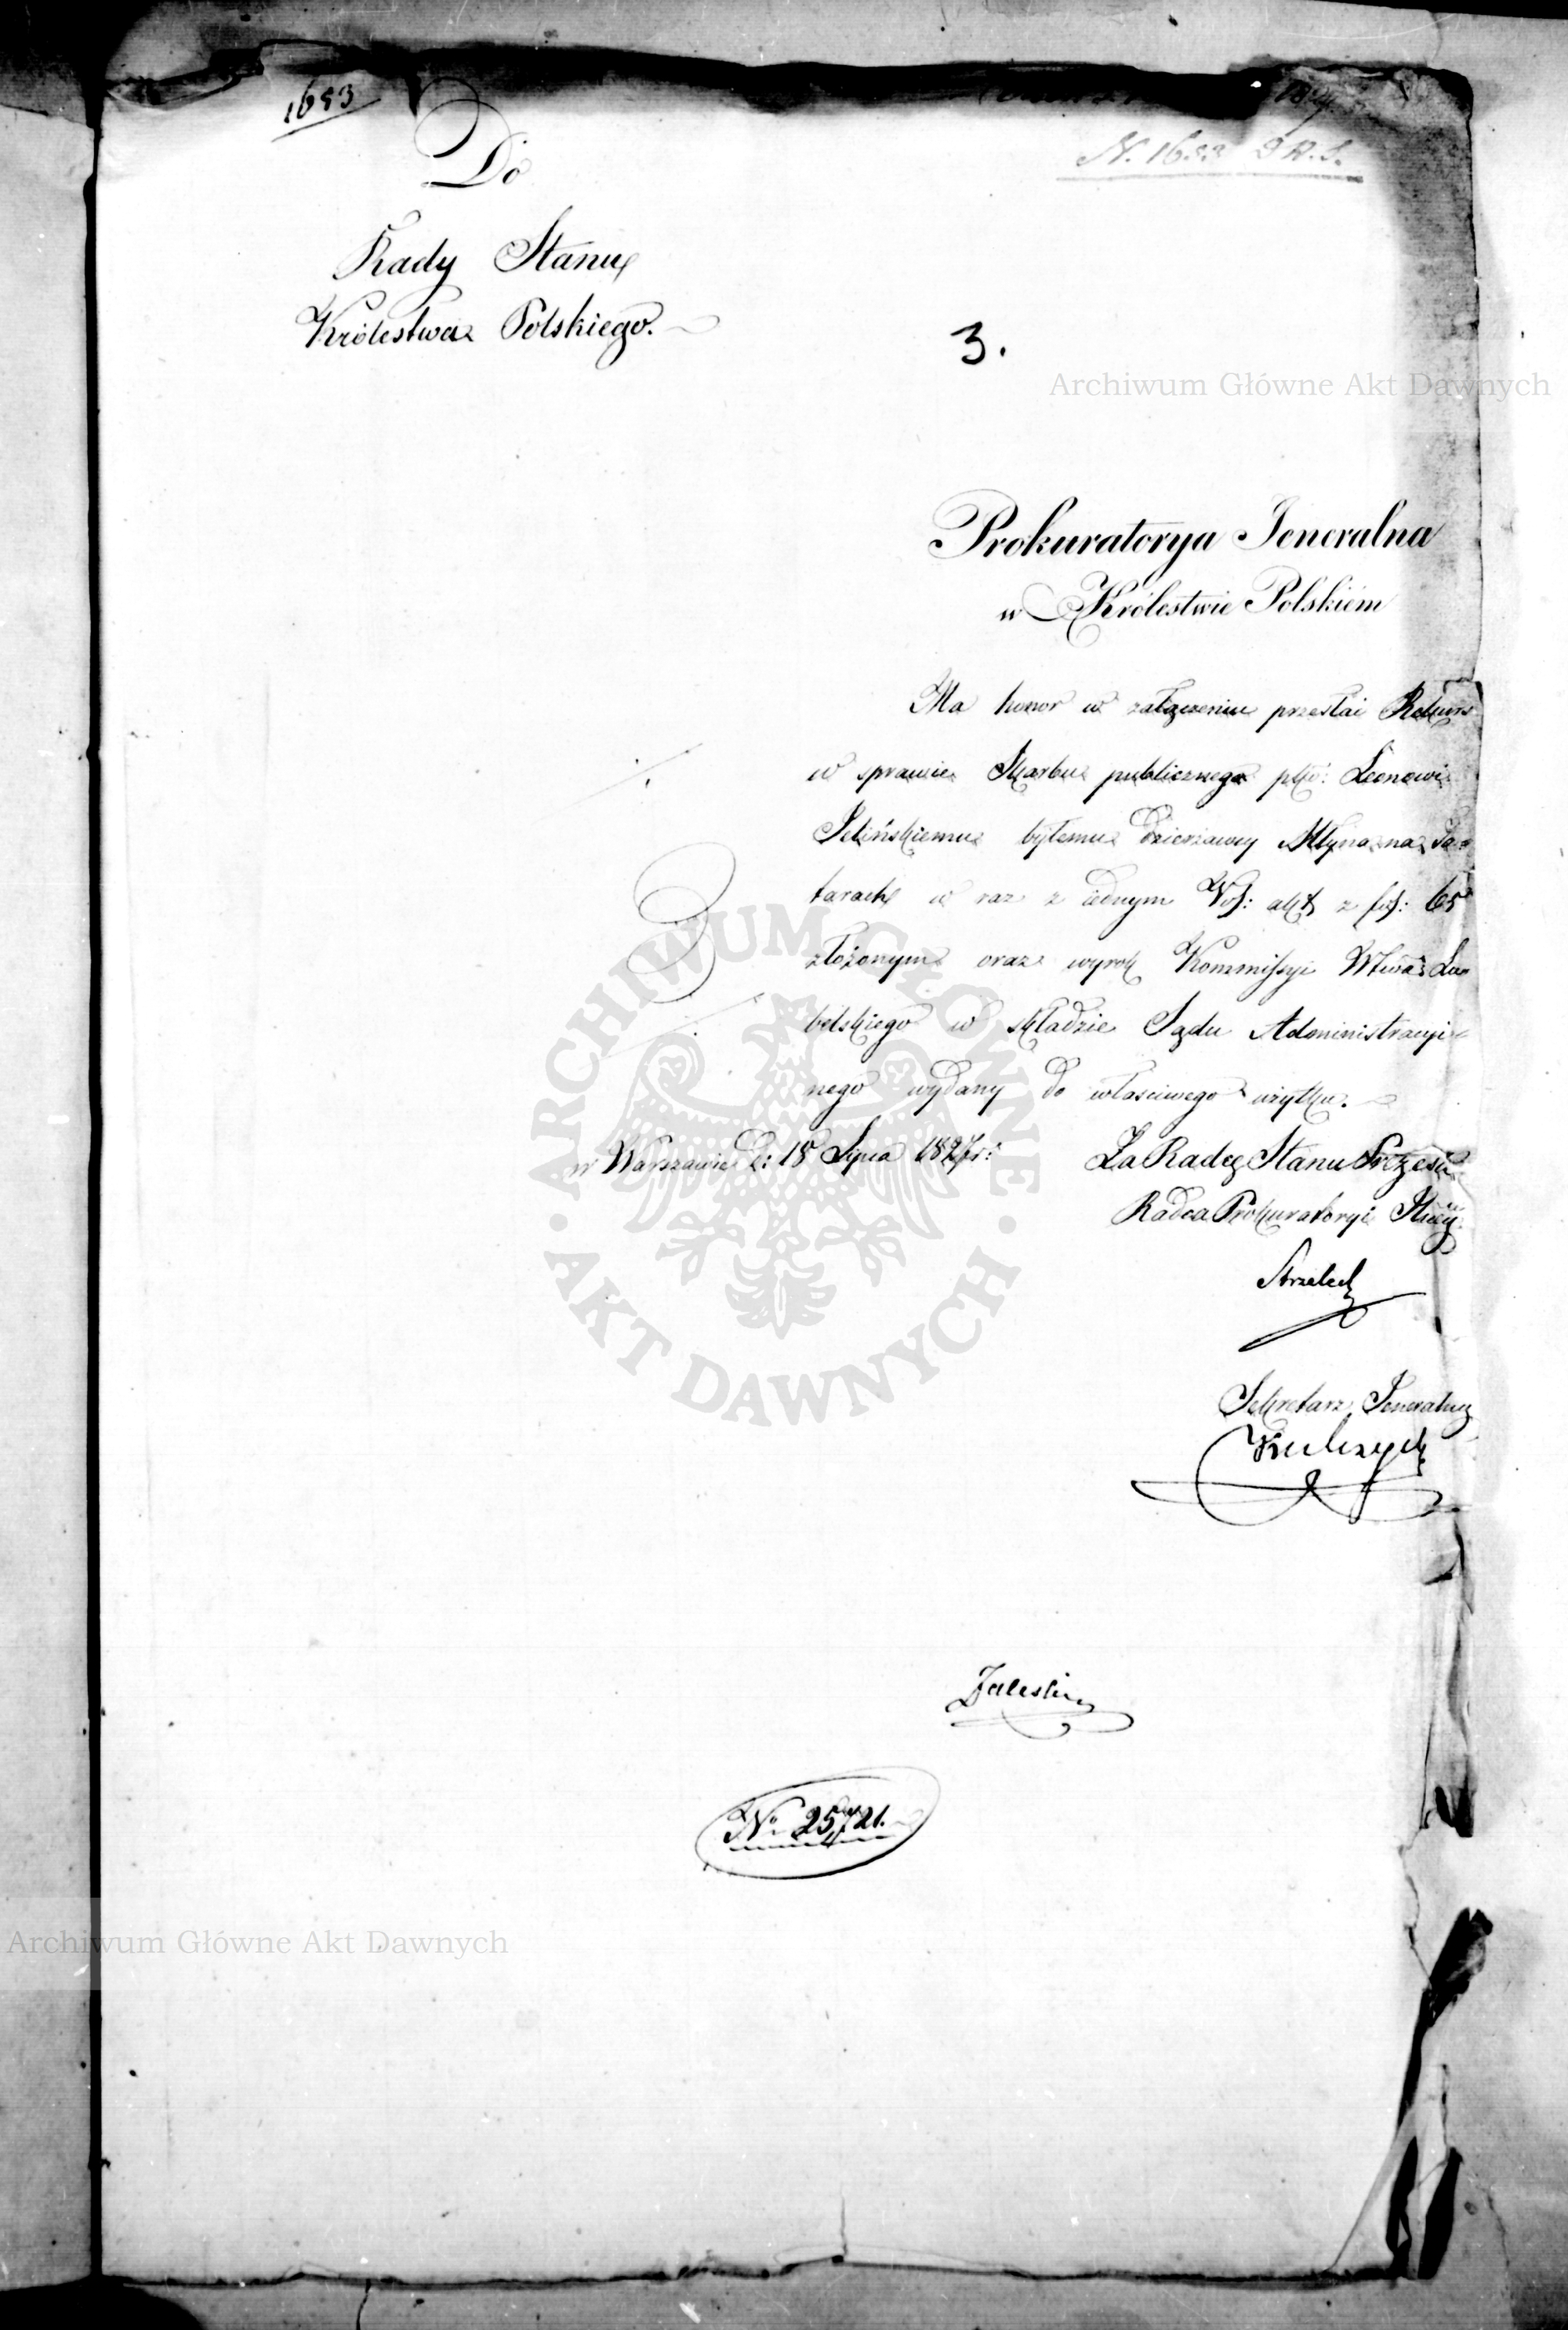 1683
N. 1683
Do
Rady Stanu
Królestwa Polskiego.
3.
Archiwum Główne Akt Dawnych
Prokuratorya Jeneralna
w Królestwie Polskiém
Ma honor w załączeniu przesłać Rekurs
w sprawie Skarbu publicznego pko: Leonowi
bytemu Dzierżawcy Młyna na Ta=
tarach w raz z iednym Vol: akt z fol: 65
złożonym oraz wyrok Kommissyi Wtwa Lu=
belskiego w składzie Sądu Administracyi=
nego wydany do właściwego użytku.
w Warszawie d: 18 Lipca 1827 r:
Za Radcę Stanu Prezesa
Radca Prokuratoryi
Sekretarz Jeneralny
Kulczycki
Zaleski
No 25721.
ARCHIWUM GŁÓWNE · AKT DAWNYCH ·
Archiwum Główne Akt Dawnych